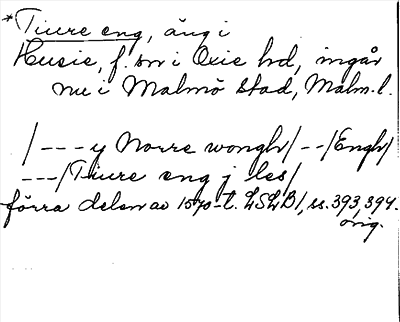 *Tiure eng, äng i
Husie, f. sn i Oxie hd, ingår
nu i Malmö stad, Malm. l.
/---y Norre wongh/--/Engh/
---/Tiure eng j les/
förra delen av 1570-t. LSLB1, ss. 393, 394.
orig.